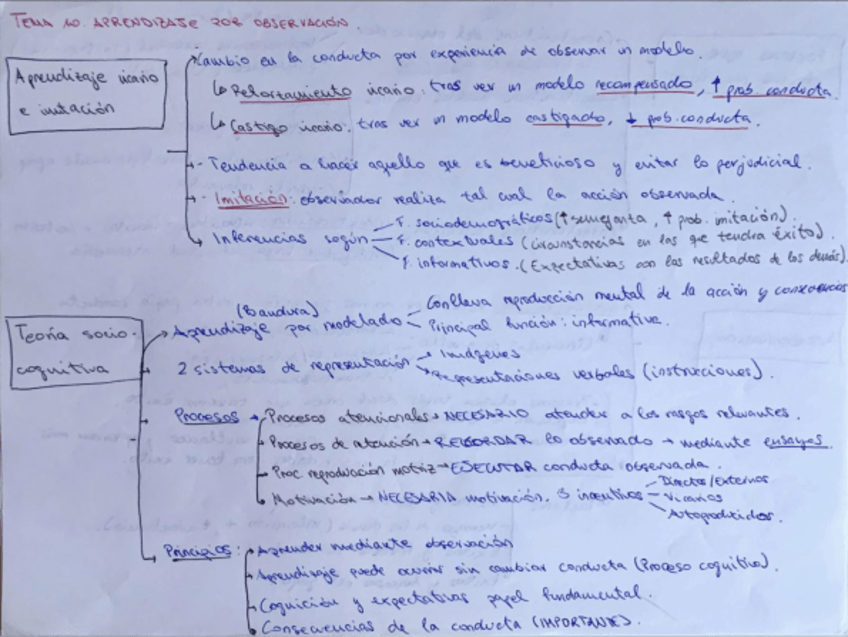 TEMA 10. APRENDIZAJE POR OBSERVACIÓN
Aprendizaje vicario e imitación
Cambio en la conducta por experiencia de observar un modelo.
↳ Reforzamiento vicario: tras ver un modelo recompensado, ↑ prob. conducta.
↳ Castigo vicario: tras ver un modelo castigado, ↓ prob. conducta.
- Tendencia a hacer aquello que es beneficioso y evitar lo perjudicial.
- Imitación: observador realiza tal cual la acción observada.
Inferencias según
F. sociodemográficos (↑ semejanza, ↑ prob. imitación).
F. contextuales (circunstancias en las que tendrá éxito).
F. informativos. (Expectativas con los resultados de los demás).
Teoría socio-
cognitiva
(Bandura)
Aprendizaje por modelado
Conlleva reproducción mental de la acción y consecuencias
Principal función: informativa.
2 sistemas de representación
Imágenes
Representaciones verbales (instrucciones).
Procesos → Procesos atencionales → NECESARIO atender a los rasgos relevantes.
Procesos de retención → RECORDAR lo observado → mediante ensayos.
Proc. reproducción motriz → EJECUTAR conducta observada.
Motivación → NECESARIA motivación. 3 incentivos
Directos/Externos
Vicarios
Autoproducidos.
Principios: Aprender mediante observación
Aprendizaje puede ocurrir sin cambiar conducta (Proceso cognitivo).
Cognición y expectativas papel fundamental.
Consecuencias de la conducta (IMPORTANTE).